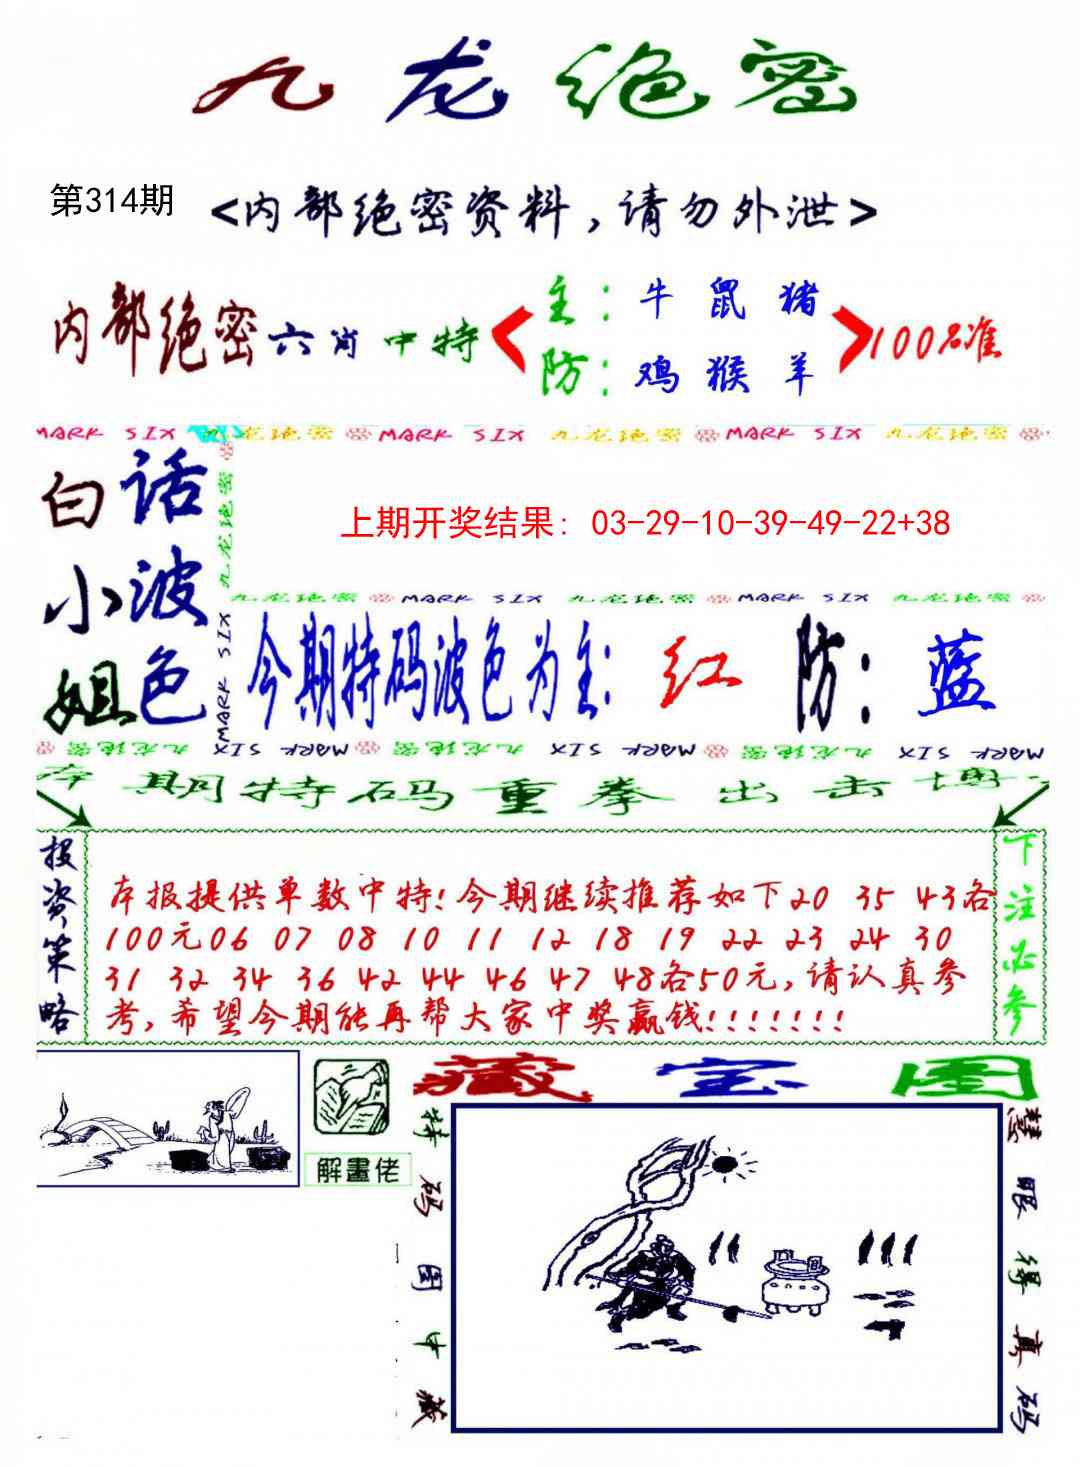 九龙绝密
第314期 <内部绝密资料,请勿外泄>
内部绝密六肖中特
主:牛 鼠 猪
防:鸡 猴 羊
100%准
MARK SIX 九龙绝密 MARK SIX 九龙绝密 MARK SIX 九龙绝密
白小姐
话波色
九龙绝密
MARK SIX
上期开奖结果: 03-29-10-39-49-22+38
九龙绝密 MARK SIX 九龙绝密 MARK SIX 九龙绝密
今期特码波色为主:红 防:蓝
九龙绝密 MARK SIX 九龙绝密 MARK SIX 九龙绝密 MARK SIX
本期特码重拳出击博
投资策略
本报提供单数中特!今期继续推荐如下20 35 43各
100元06 07 08 10 11 12 18 19 22 23 24 30
31 32 34 36 42 44 46 47 48各50元,请认真参
考,希望今期能再帮大家中奖赢钱!!!!!!!
下注必参
解畫佬
藏宝图
特码图中藏
慧眼得真码